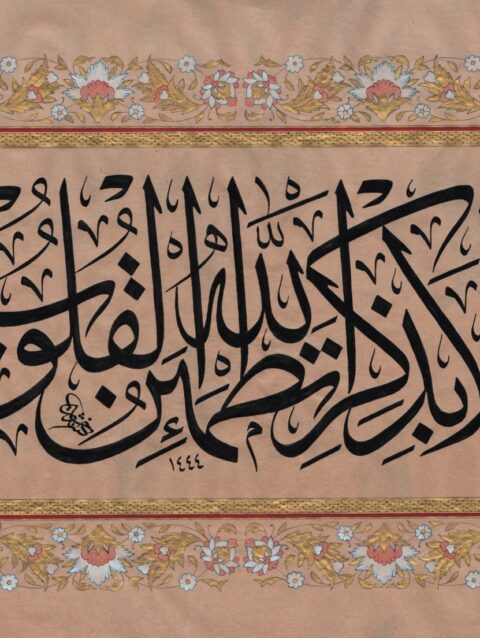 ألا بذكر الله تطمئن القلوب
١٤٤٤